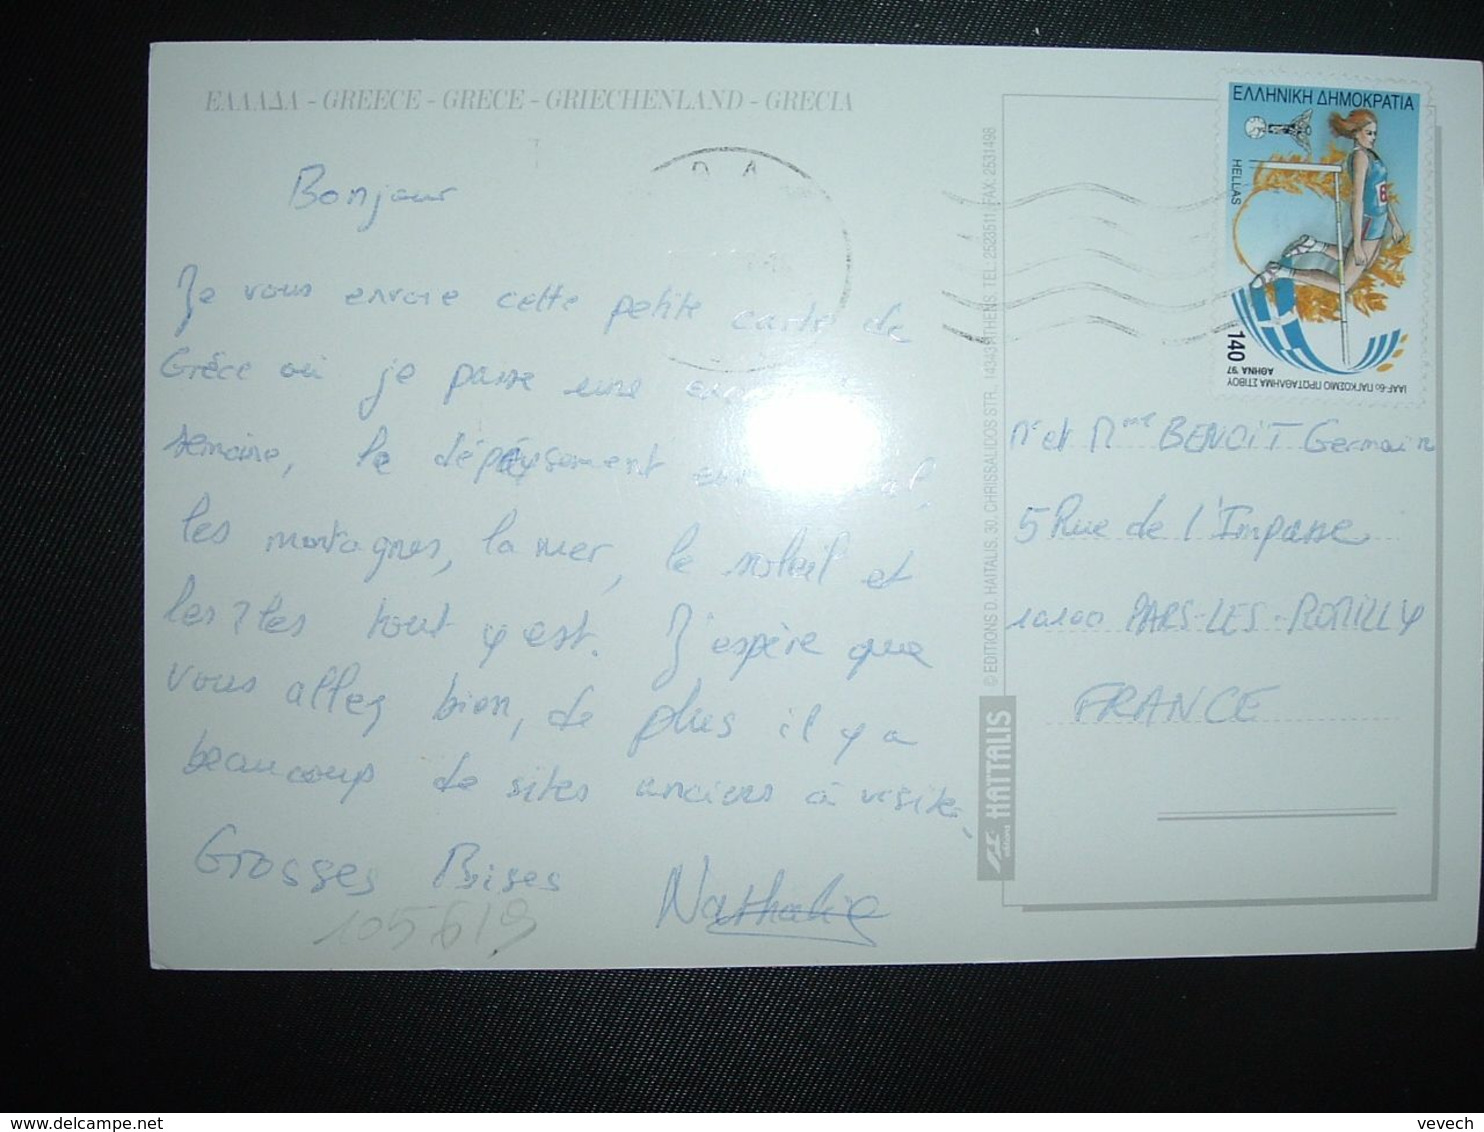 ΕΛΛΑΔΑ - GREECE - GRECE - GRIECHENLAND - GRECIA
Bonjour
Je vous envoie cette petite carte de
Grèce où je passe une
semaine, le dépaysement
les montagnes, la mer, le soleil et
les îles tout y est. J'espère que
vous allez bien, de plus il y a
beaucoup de sites anciens à visiter.
Grosses Bises Nathalie
105619
© EDITIONS D. HAITALIS 30, CHRISSALIDOS STR., 14343 ATHENS TEL. 2523511, FAX: 2531498
HAITALIS
ΕΛΛΗΝΙΚΗ ΔΗΜΟΚΡΑΤΙΑ
HELLAS
140
ΑΘΗΝΑ '97
IAAF-6ο ΠΑΓΚΟΣΜΙΟ ΠΡΩΤΑΘΛΗΜΑ ΣΤΙΒΟΥ
Mr et Mme BENOIT Germain
5 Rue de l'Impasse
10100 PARS-LES-ROMILLY
FRANCE
vevech